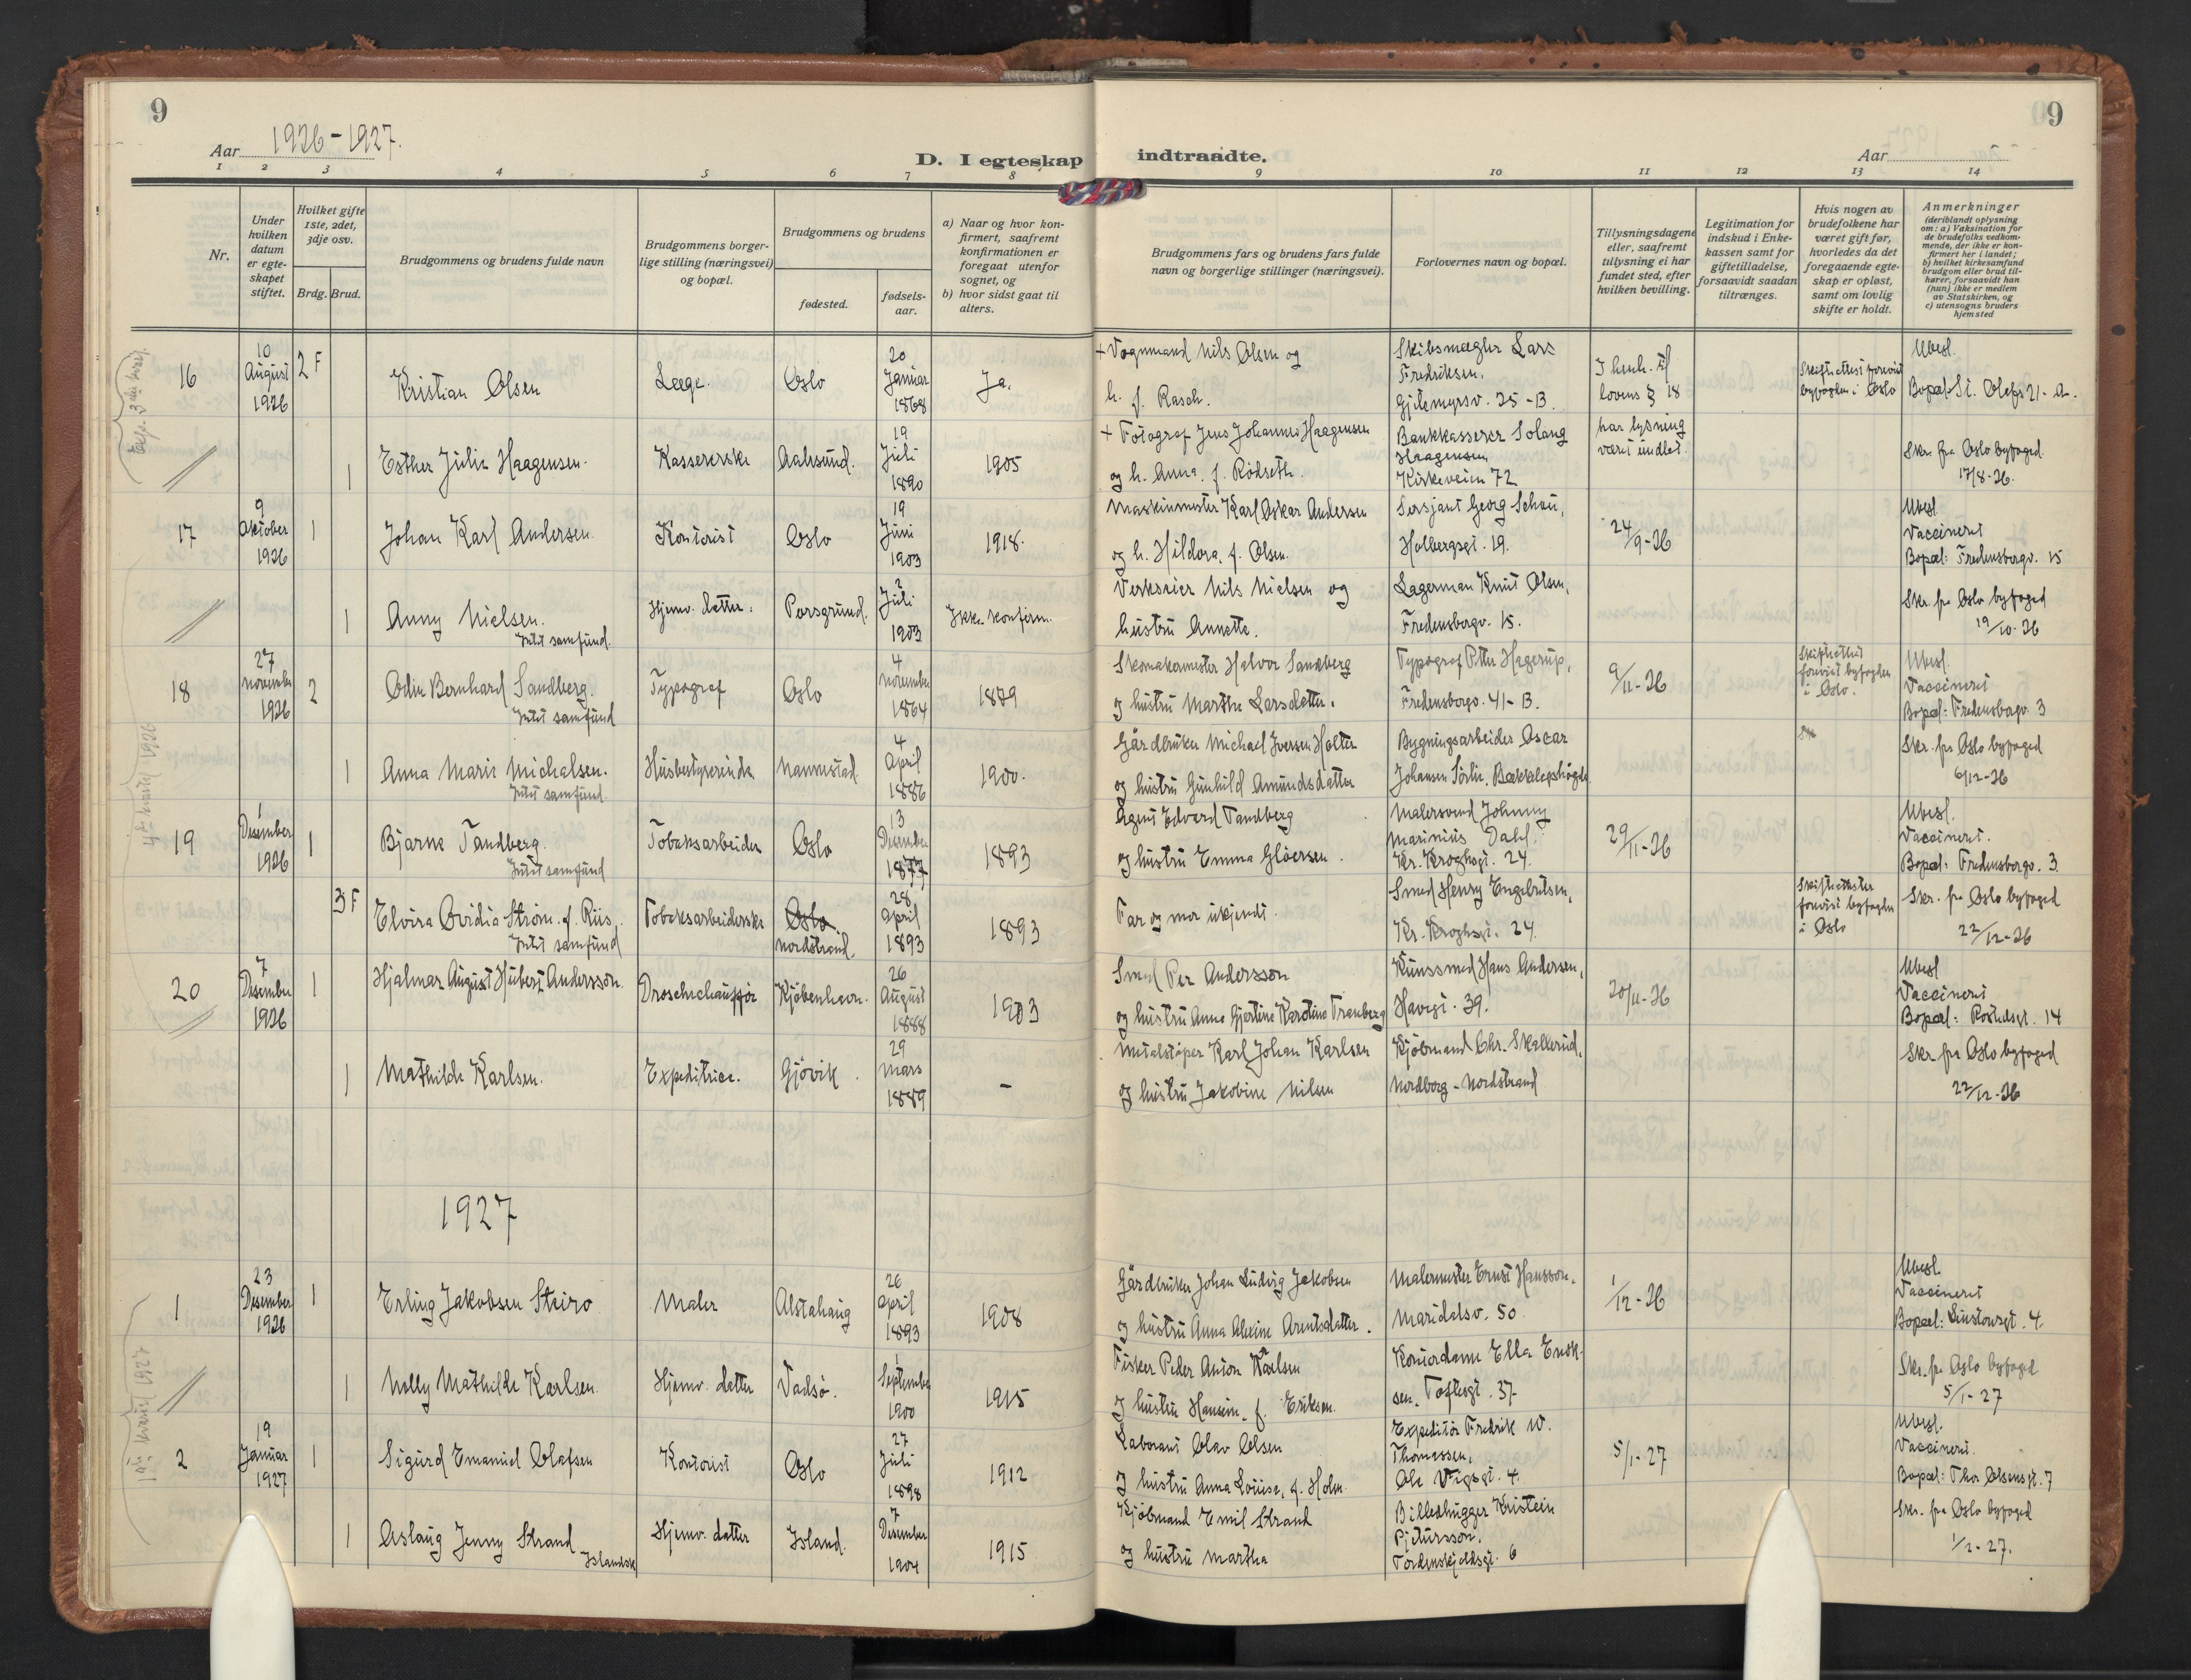 9
Aar 1926-1927.
D. I egteskap indtraadte.
Aar
9
1 2 3 4 5 6 7 8 9 10 11 12 13 14
Nr.
Under hvilken datum er egte-skapet stiftet.
Hvilket gifte 1ste, 2det, 3dje osv.
Brdg. Brud.
Brudgommens og brudens fulde navn
Brudgommens borger-lige stilling (næringsvei) og bopæl.
Brudgommens og brudens
fødested.
fødsels-aar.
a) Naar og hvor kon-firmert, saafremt konfirmationen er foregaat utenfor sognet, og
b) hvor sidst gaat til alters.
Brudgommens fars og brudens fars fulde navn og borgerlige stillinger (næringsvei).
Forlovernes navn og bopæl.
Tillysningsdagene eller, saafremt tillysning ei har fundet sted, efter hvilken bevilling.
Legitimation for indskud i Enke-kassen samt for giftetilladelse, forsaavidt saadan tiltrænges.
Hvis nogen av brudefolkene har været gift før, hvorledes da det foregaaende egte-skap er opløst, samt om lovlig skifte er holdt.
Anmerkninger
(deriblandt oplysning om: a) Vaksination for de brudefolks vedkom-mende, der ikke er kon-firmert her i landet;
b) hvilket kirkesamfund brudgom eller brud til-hører, forsaavidt han (hun) ikke er medlem av Statskirken, og
c) utensogns bruders hjemsted
16
10 August 1926
2 F
Kristian Olsen
Læge.
Oslo
20 Januar 1868
Ja.
+ Vognmand Nils Olsen og
h. f. Rasch.
Skibsmægler Lars
Fredriksen.
Gjetemyrsv. 25-B.
I henh. til
lovens § 18
har lysning
været undlat.
byfogden i Oslo
Ubesl.
Bopæl: St. Olafsgt. 21-a.
1
Esther Julie Haagensen.
Kassererske
Aalesund.
19 Juli 1890
1905
+ Fotograf Jens Johannes Haagensen
og h. Anna f. Rödseth.
Bankkasserer Solaug
Haagensen
Kirkeveien 72
Skr. fra Oslo byfoged
17/8-26.
17
9 Oktober 1926
1
Johan Karl Andersen.
Kontorist
Oslo
19 Juni 1903
1918.
Maskinmester Karl Oskar Andersen
og h. Hildora, f. Olsen.
Sersjant Georg Schou,
Holbergsgt. 19.
24/9-26
Ubesl
Vaccineret
Bopæl: Fredensborgv. 15
1
Anny Nielsen.
Intet samfund.
Hjemv. datter.
Porsgrund.
2 Juli 1903
Ikke konfirm.
Verkseier Nils Nielsen og
hustru Annette.
Lagerman Knut Olsen,
Fredensborgv. 15.
Skr. fra Oslo byfoged
19/10-26
18
27 november 1926
2
Odin Bernhard Sandberg.
Intet samfund
Typograf
Oslo
4 november 1864
1879
Skomakermester Halvor Sandberg
og hustru Marthe Larsdatter.
Typograf Petter Hagerup,
Fredensborgv. 41-B.
9/11-26
Skifteattest
forevist byfogden
i Oslo.
Ubesl.
Vaccineret
Bopæl: Fredensborgv. 3
4de kvartal 1926
1
Anna Marie Michalsen.
Intet samfund
Husbestyrerinde
Nannestad
4 April 1886
1900.
Gårdbruker Michael Iversen Holter
og hustru Gunhild Amundsdatter
Bygningsarbeider Oscar
Johansen Sörlie. Bækkelagshögda
Skr. fra Oslo byfoged
6/12-26
19
1 Desember 1926
1
Bjarne Tandberg.
Intet samfund
Tobaksarbeider
Oslo
13 Desember 1877
1893
Agent Edvard Tandberg
og hustru Emma Glöersen.
Malersvend Johnny
Marinius Dahl.
Kr. Kroghsgt. 24.
29/11-26
Ubesl.
Vaccineret.
Bopæl: Fredensborgv. 3.
3 F
Elvira Ovidia Ström. f. Riis,
Intet samfund
Tobaksarbeiderske
Oslo
Nordstrand.
28 April 1893
1893
Far og mor ukjendt.
Smed Henry Engebretsen,
Kr. Kroghsgt. 24.
Skifteattester
forevist byfogden
i Oslo
Skr. fra Oslo byfoged
22/12-26
20
7 Desember 1926
1
Hjalmar August Hubert Andersson.
Droschechauffør
Kjöbenhavn.
26 August 1888
1903
Smed Per Andersson
og hustru Anna Gjertine Karoline Tranberg
Kunssmed Hans Andersen,
Havegt. 39.
20/11-26
Ubesl
Vaccineret
Bopæl: Rostedsgt. 14
1
Mathilde Karlsen.
Expeditrice.
Gjövik.
29 Mars 1889
-
Metalstöper Karl Johan Karlsen
og hustru Jakobine Nilsen
Kjöbmand Chr. Skallerud,
Nordborg - Nordstrand
Skr. fra Oslo byfoged
22/12-26
1927
1
23 Desember 1926
1
Erling Jakobsen Steiro
Maler
Alstahaug
26 April 1893
1908
Gårdbruker Johan Ludvig Jakobsen
og hustru Anna Alexine Arentsdatter.
Malermester Ernst Hansson.
Maridalsv. 50
1/12-26
Ubesl.
Vaccineret
Bopæl: Linstowsgt. 4.
1ste kvartal 1927
1
Nelly Mathilde Karlsen.
Hjemv. datter
Vadsö.
1 September 1900
1915
Fisker Peder Anton Karlsen
og hustru Hansine, f. Eriksen.
Kontordame Ella Erik-
sen. Toftesgt. 37
Skr. fra Oslo byfoged
5/1-27
2
19 Januar 1927
1
Sigurd Emanuel Olafsen
Kontorist
Oslo
27 Juli 1898
1912
Laborant Olav Olsen
og hustru Anna Louise, f. Holm.
Expeditör Fredrik W.
Thomassen,
Ole Vigsgt. 4.
5/1-27
Ubesl.
Vaccineret.
Bopæl: Thor Olsensgt. 7
1
Aslaug Jenny Strand
Islandsk
Hjemv. datter
Island.
7 Desember 1904
1915
Kjöbmand Emil Strand
og hustru Martha
Billedhugger Kristein
Pjetursson.
Tordenskjoldsgt. 6
Skr. fra Oslo byfoged
1/2-27.